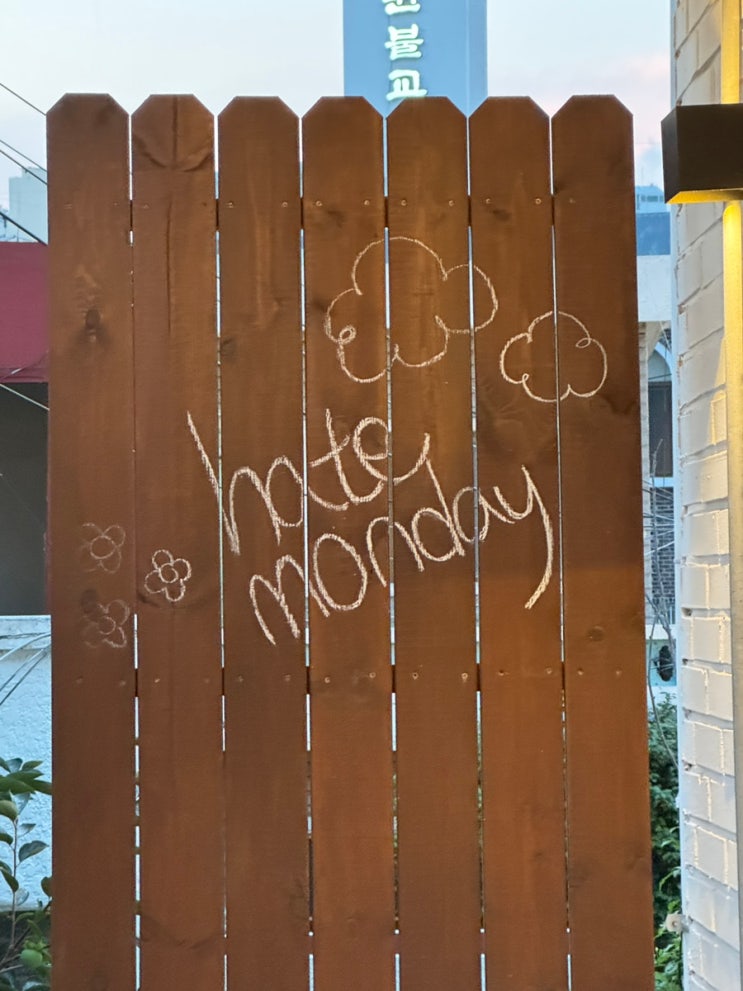 불교
hate
monday